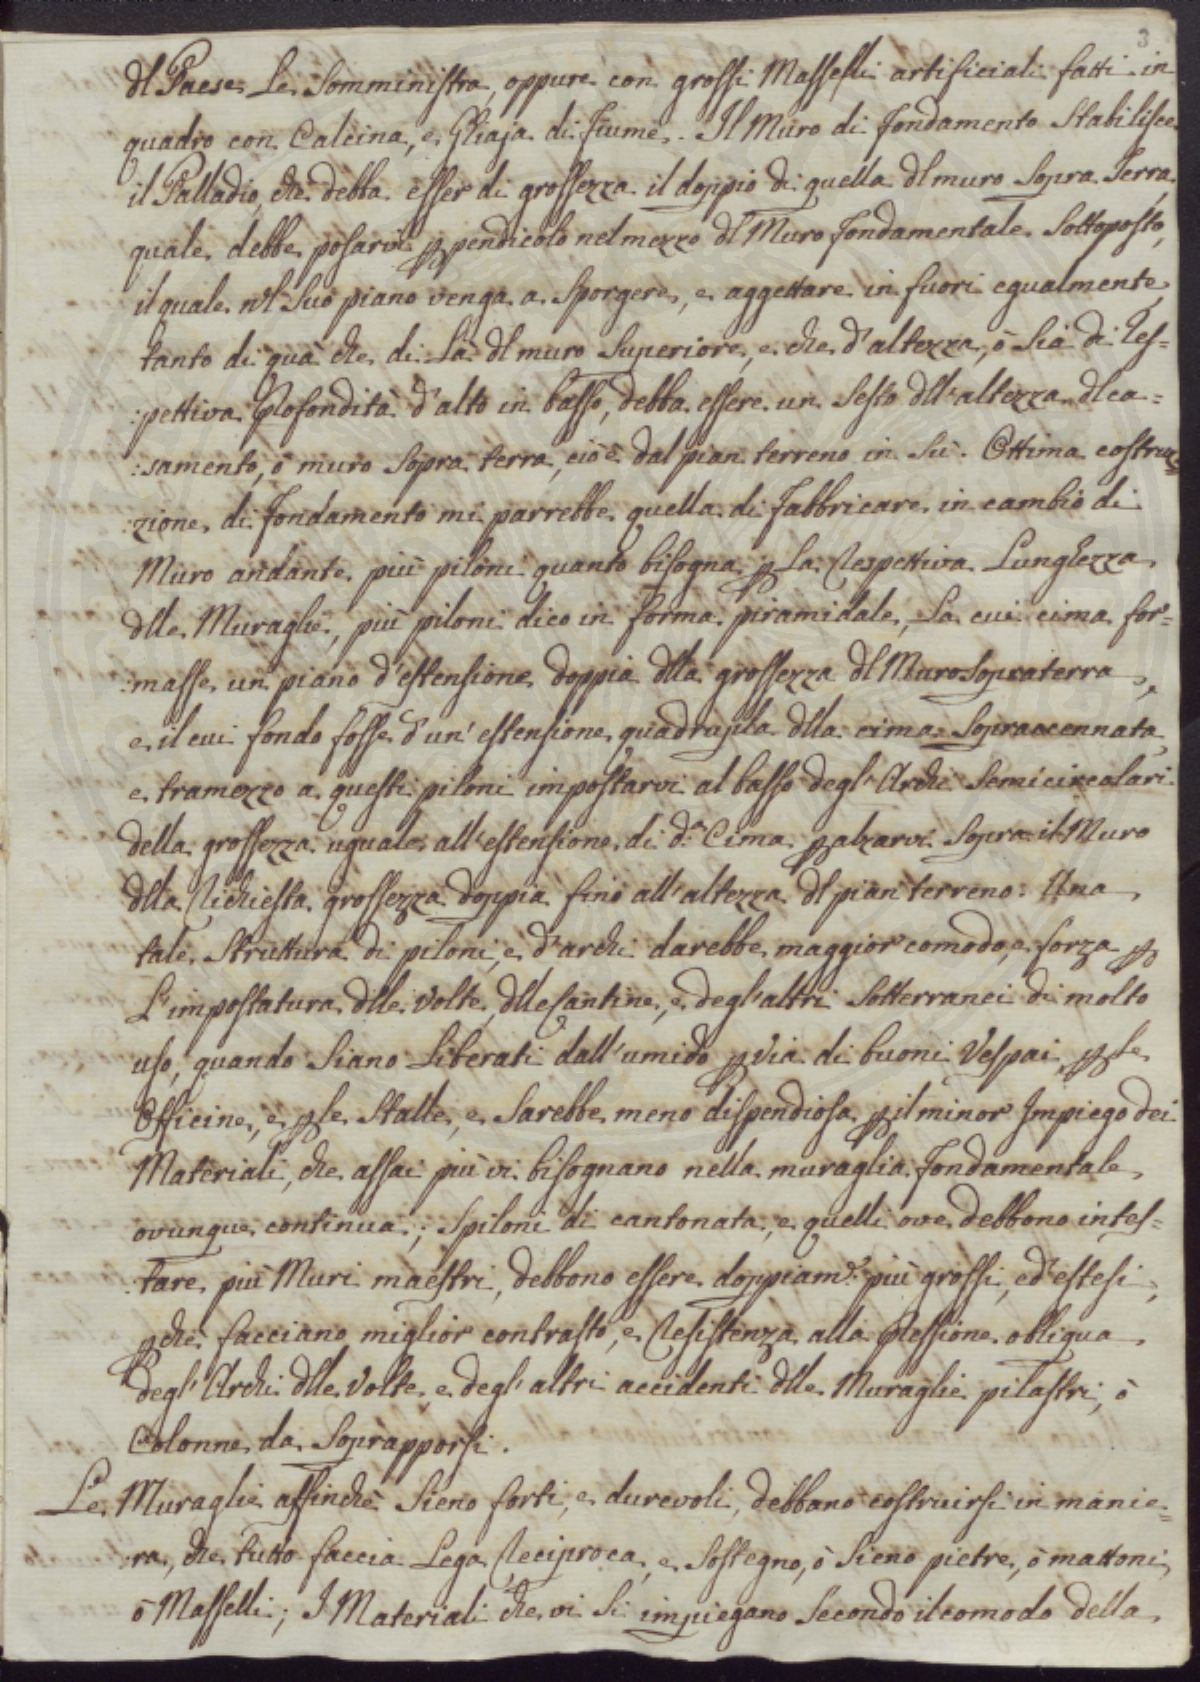 3
dl Paese le somministra, oppure con grossi Masselli artificiali fatti in
quadro con Calcina, e Ghiaja di Fiume. Il Muro di fondamento stabilisce
il Palladio, che debba esser di grossezza il doppio di quella dl muro sopra Terra,
quale debbe posarvi ꝑpendicolo nel mezzo dl Muro fondamentale sottoposto,
il quale nl suo piano venga a sporgere, e aggettare in fuori egualmente
tanto di quà che di là dl muro superiore, e che d'altezza, ò sia di res=
:pettiva profondità d'alto in basso, debba essere un sesto dll'altezza dl ca=
:samento, ò muro sopra terra, cioè dal pian terreno in sù. Ottima costru=
:zione di fondamento mi parrebbe quella di fabbricare in cambio di
Muro andante più piloni quanto bisogna ꝑ la respettiva lunghezza
dlle Muraglie, più piloni dico in forma piramidale, la cui cima for=
:masse un piano d'estensione doppia dlla grossezza dl Muro sopra terra,
e il cui fondo fosse d'un' estensione quadrupla dlla cima sopraccennata,
e tramezzo a questi piloni impostarvi al basso degl'Archi semicircolari
della grossezza uguale all'estensione di d.ª Cima ꝑ alzarvi sopra il Muro
dlla richiesta grossezza doppia fino all'altezza dl pian terreno: Una
tale struttura di piloni, e d'archi darebbe maggior comodo, e forza ꝑ
l'impostatura dlle volte, dlle Cantine, e degl'altri sotterranei di molto
uso, quando siano liberati dall'umido ꝑ via di buoni Vespai, ꝑ le
Officine, e ꝑ le stalle, e sarebbe meno dispendiosa ꝑ il minor Impiego dei
Materiali, che assai più vi bisognano nella muraglia fondamentale
ovunque continua; I piloni di cantonata, e quelli ove debbono intes=
:tare più Muri maestri, debbono essere doppiam.e più grossi, ed estesi,
ꝑchè facciano miglior contrasto, e resistenza alla pressione obliqua
degl'Archi dlle volte, e degl'altri accidenti dlle Muraglie pilastri, ò
Colonne da soprapporsi.
Le Muraglie affinchè sieno forti, e durevoli, debbano costruirsi in manie=
:ra, che tutto faccia lega reciproca, e sostegno, ò sieno pietre, ò mattoni,
ò Masselli; I Materiali che vi si impiegano secondo il comodo della